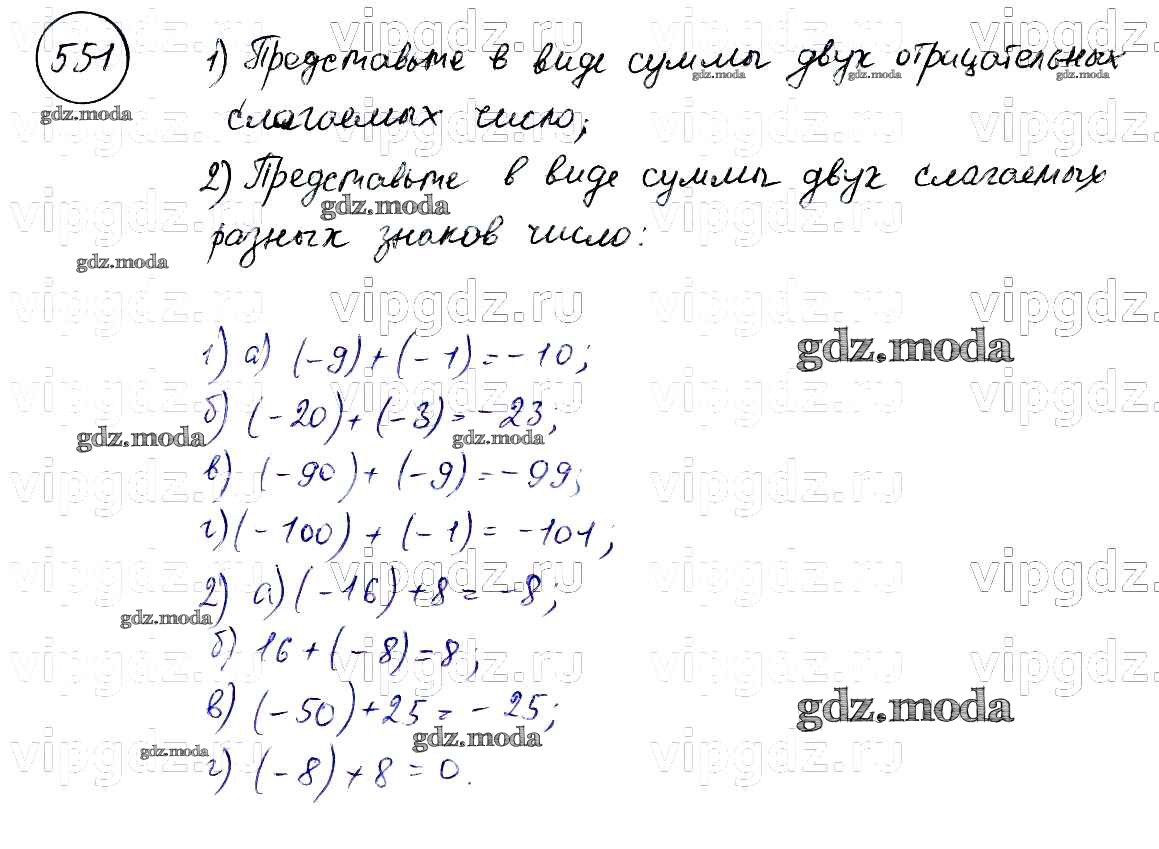 551
1) Представьте в виде суммы двух отрицательных
слагаемых число;
2) Представьте в виде суммы двух слагаемых
разных знаков число:
1) а) (-9)+(-1)=-10;
б) (-20)+(-3)=-23;
в) (-90)+(-9)=-99;
г) (-100)+(-1)=-101;
2) а) (-16)+8=-8;
б) 16+(-8)=8;
в) (-50)+25=-25;
г) (-8)+8=0.
gdz.moda
vipgdz.ru